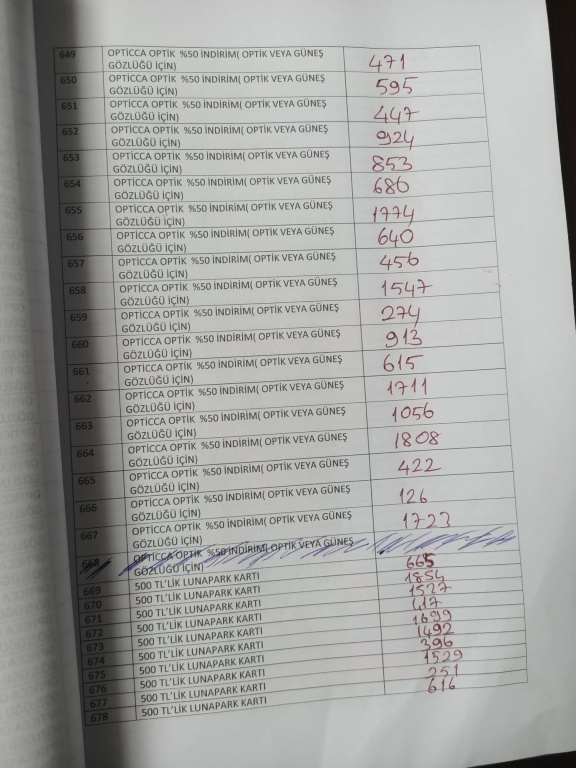 649 OPTİCCA OPTİK %50 İNDİRİM( OPTİK VEYA GÜNEŞ
GÖZLÜĞÜ İÇİN) 471
650 OPTİCCA OPTİK %50 İNDİRİM( OPTİK VEYA GÜNEŞ
GÖZLÜĞÜ İÇİN) 595
651 OPTİCCA OPTİK %50 İNDİRİM( OPTİK VEYA GÜNEŞ
GÖZLÜĞÜ İÇİN) 447
652 OPTİCCA OPTİK %50 İNDİRİM( OPTİK VEYA GÜNEŞ
GÖZLÜĞÜ İÇİN) 924
653 OPTİCCA OPTİK %50 İNDİRİM( OPTİK VEYA GÜNEŞ
GÖZLÜĞÜ İÇİN) 853
654 OPTİCCA OPTİK %50 İNDİRİM( OPTİK VEYA GÜNEŞ
GÖZLÜĞÜ İÇİN) 686
655 OPTİCCA OPTİK %50 İNDİRİM( OPTİK VEYA GÜNEŞ
GÖZLÜĞÜ İÇİN) 1774
656 OPTİCCA OPTİK %50 İNDİRİM( OPTİK VEYA GÜNEŞ
GÖZLÜĞÜ İÇİN) 640
657 OPTİCCA OPTİK %50 İNDİRİM( OPTİK VEYA GÜNEŞ
GÖZLÜĞÜ İÇİN) 456
658 OPTİCCA OPTİK %50 İNDİRİM( OPTİK VEYA GÜNEŞ
GÖZLÜĞÜ İÇİN) 1547
659 OPTİCCA OPTİK %50 İNDİRİM( OPTİK VEYA GÜNEŞ
GÖZLÜĞÜ İÇİN) 274
660 OPTİCCA OPTİK %50 İNDİRİM( OPTİK VEYA GÜNEŞ
GÖZLÜĞÜ İÇİN) 913
661 OPTİCCA OPTİK %50 İNDİRİM( OPTİK VEYA GÜNEŞ
GÖZLÜĞÜ İÇİN) 615
662 OPTİCCA OPTİK %50 İNDİRİM( OPTİK VEYA GÜNEŞ
GÖZLÜĞÜ İÇİN) 1711
663 OPTİCCA OPTİK %50 İNDİRİM( OPTİK VEYA GÜNEŞ
GÖZLÜĞÜ İÇİN) 1056
664 OPTİCCA OPTİK %50 İNDİRİM( OPTİK VEYA GÜNEŞ
GÖZLÜĞÜ İÇİN) 1808
665 OPTİCCA OPTİK %50 İNDİRİM( OPTİK VEYA GÜNEŞ
GÖZLÜĞÜ İÇİN) 422
666 OPTİCCA OPTİK %50 İNDİRİM( OPTİK VEYA GÜNEŞ
GÖZLÜĞÜ İÇİN) 126
667 OPTİCCA OPTİK %50 İNDİRİM( OPTİK VEYA GÜNEŞ
GÖZLÜĞÜ İÇİN) 1723
668 OPTİCCA OPTİK %50 İNDİRİM( OPTİK VEYA GÜNEŞ
GÖZLÜĞÜ İÇİN)
669 500 TL'LİK LUNAPARK KARTI 665
670 500 TL'LİK LUNAPARK KARTI 1854
671 500 TL'LİK LUNAPARK KARTI 1527
672 500 TL'LİK LUNAPARK KARTI 417
673 500 TL'LİK LUNAPARK KARTI 1699
674 500 TL'LİK LUNAPARK KARTI 1492
675 500 TL'LİK LUNAPARK KARTI 396
676 500 TL'LİK LUNAPARK KARTI 1529
677 500 TL'LİK LUNAPARK KARTI 251
678 500 TL'LİK LUNAPARK KARTI 616